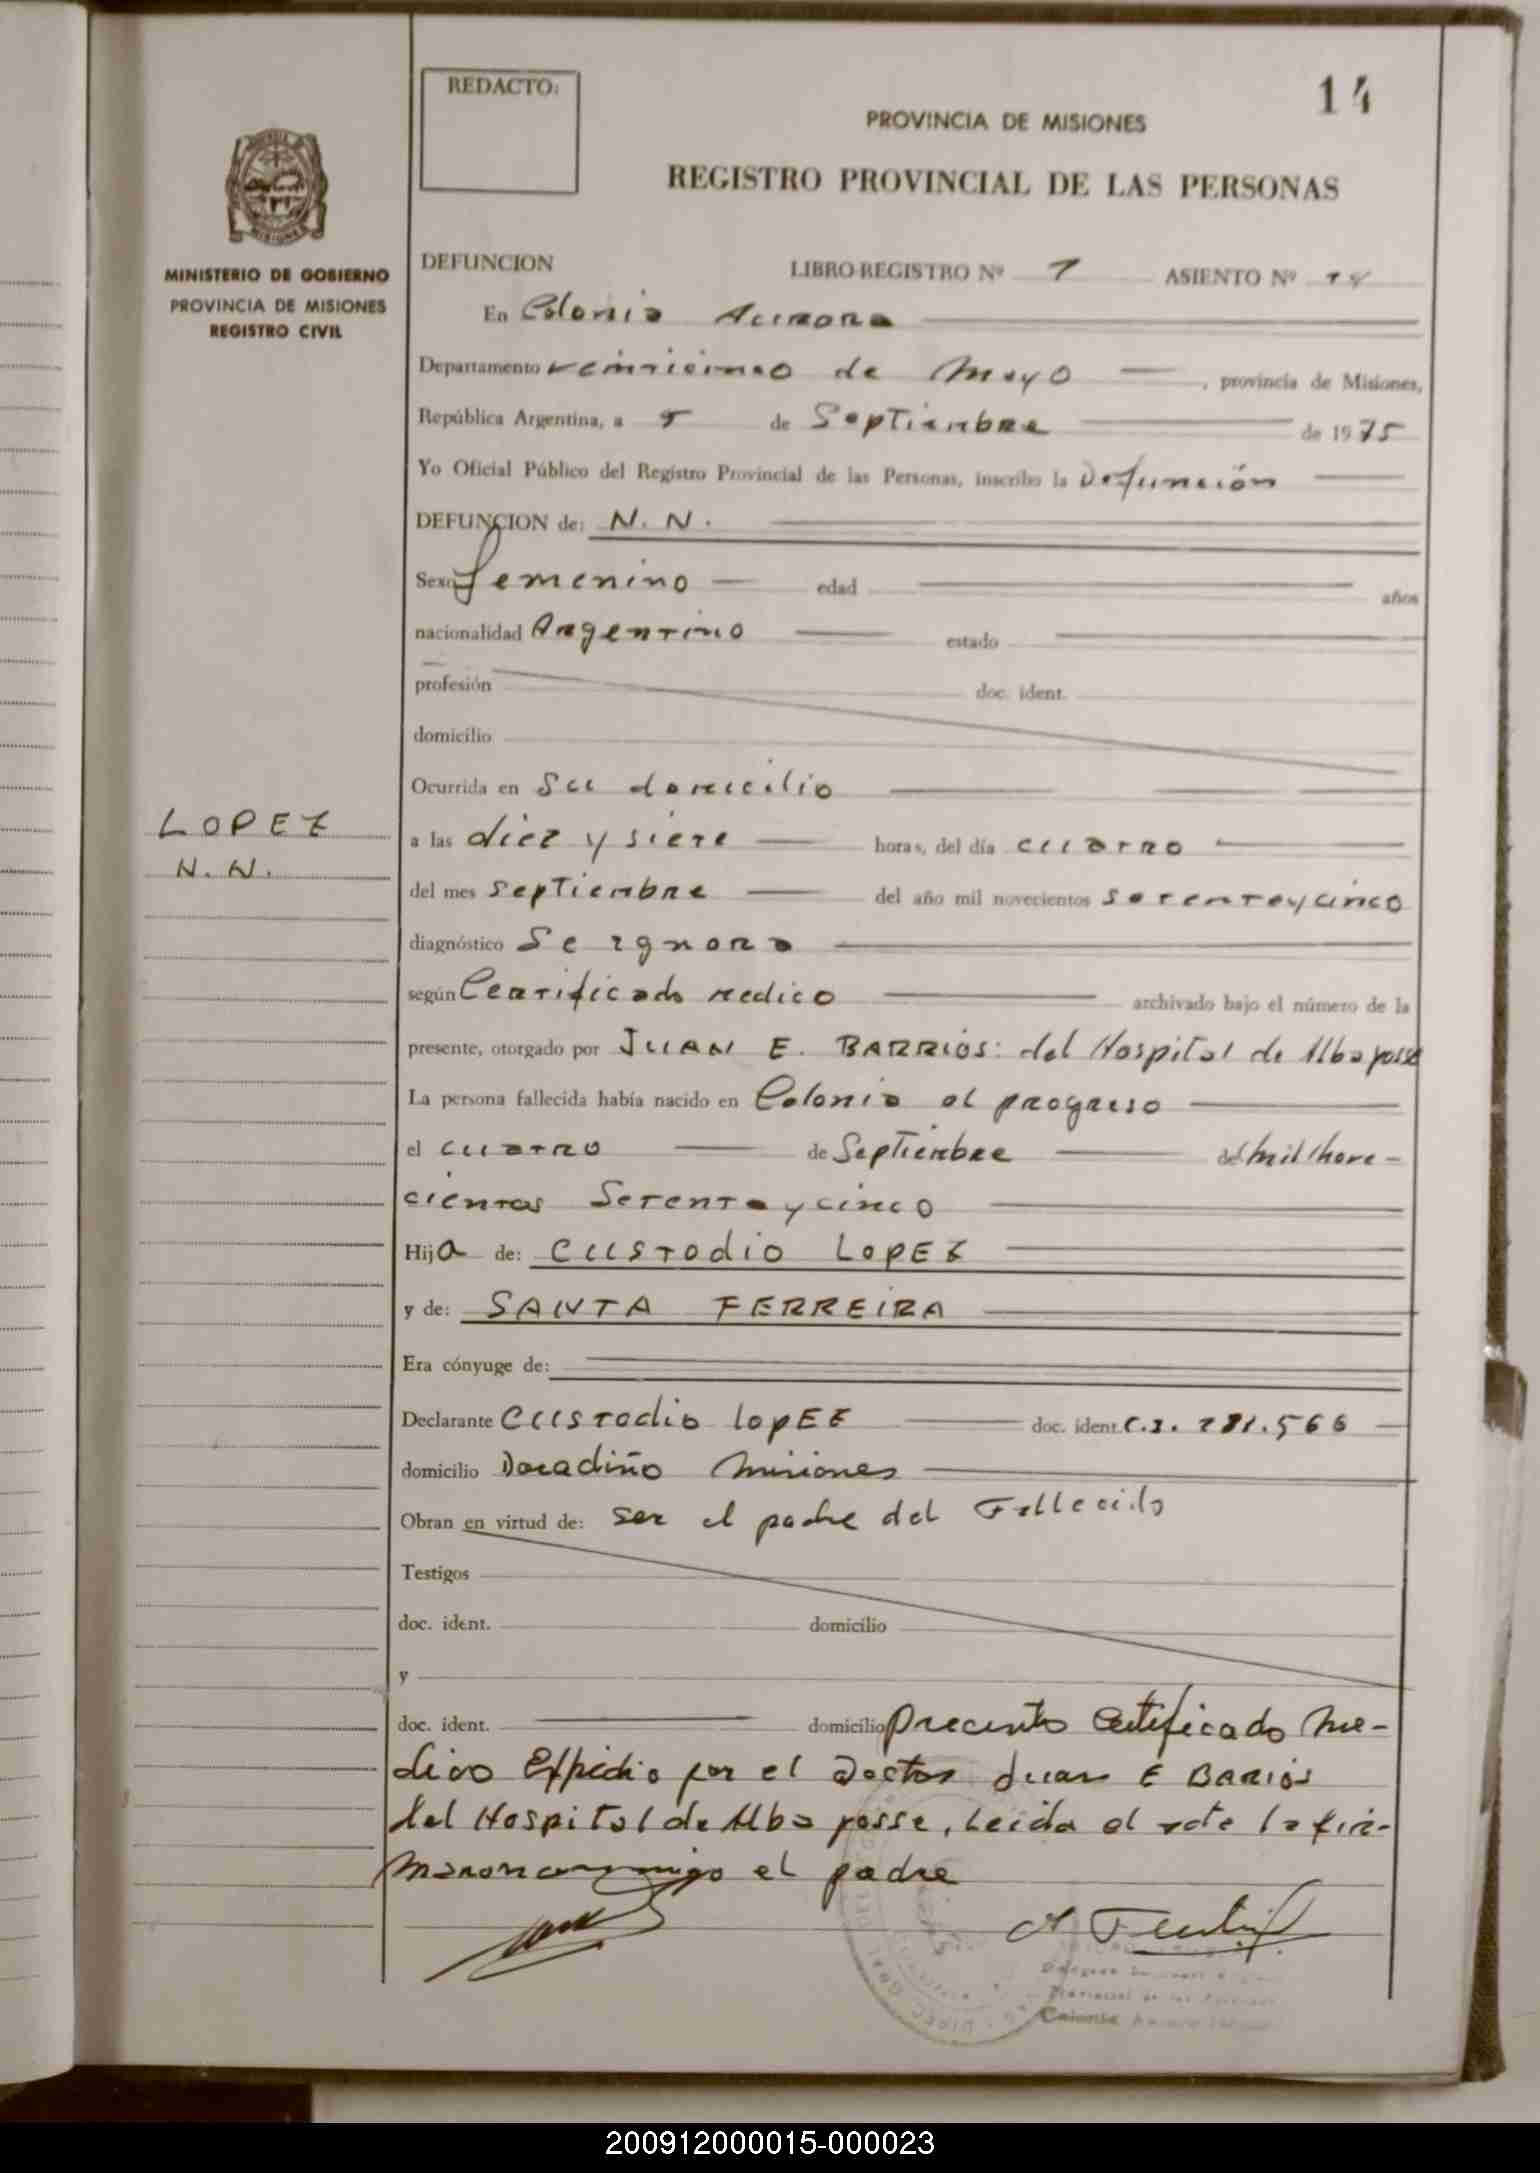 REDACTO:
14
PROVINCIA DE MISIONES
REGISTRO PROVINCIAL DE LAS PERSONAS
MINISTERIO DE GOBIERNO
PROVINCIA DE MISIONES
REGISTRO CIVIL
DEFUNCION LIBRO-REGISTRO Nº 1 ASIENTO Nº 14
En Colonia Aurora
Departamento veinticinco de Mayo , provincia de Misiones,
República Argentina, a 5 de Septiembre de 1975
Yo Oficial Público del Registro Provincial de las Personas, inscribo la Defunción
DEFUNCION de: N. N.
Sexo femenino edad años
nacionalidad Argentino estado
profesión doc. ident.
domicilio
Ocurrida en su domicilio
LOPEZ
N. N.
a las diez y siete horas, del día cuatro
del mes septiembre del año mil novecientos setenta y cinco
diagnóstico Se ignora
según Certificado medico archivado bajo el número de la
presente, otorgado por JUAN E. BARRIOS: del Hospital de Alba posse
La persona fallecida había nacido en Colonia el progreso
el cuatro de Septiembre del mil nove-
cientos Setenta y cinco
Hija de: CUSTODIO LOPEZ
y de: SANTA FERREIRA
Era cónyuge de:
Declarante CUSTODIO LOPEZ doc. ident. C.I. 281.566
domicilio Doradiño Misiones
Obran en virtud de: ser el padre del Fallecido
Testigos
doc. ident. domicilio
y
doc. ident. domicilio Precento Certificado me-
dico Expidio por el Doctor Juan E BARIOS
del Hospital de Alba posse, Leida el acta la fir-
maron conmigo el padre
Colonia
200912000015-000023